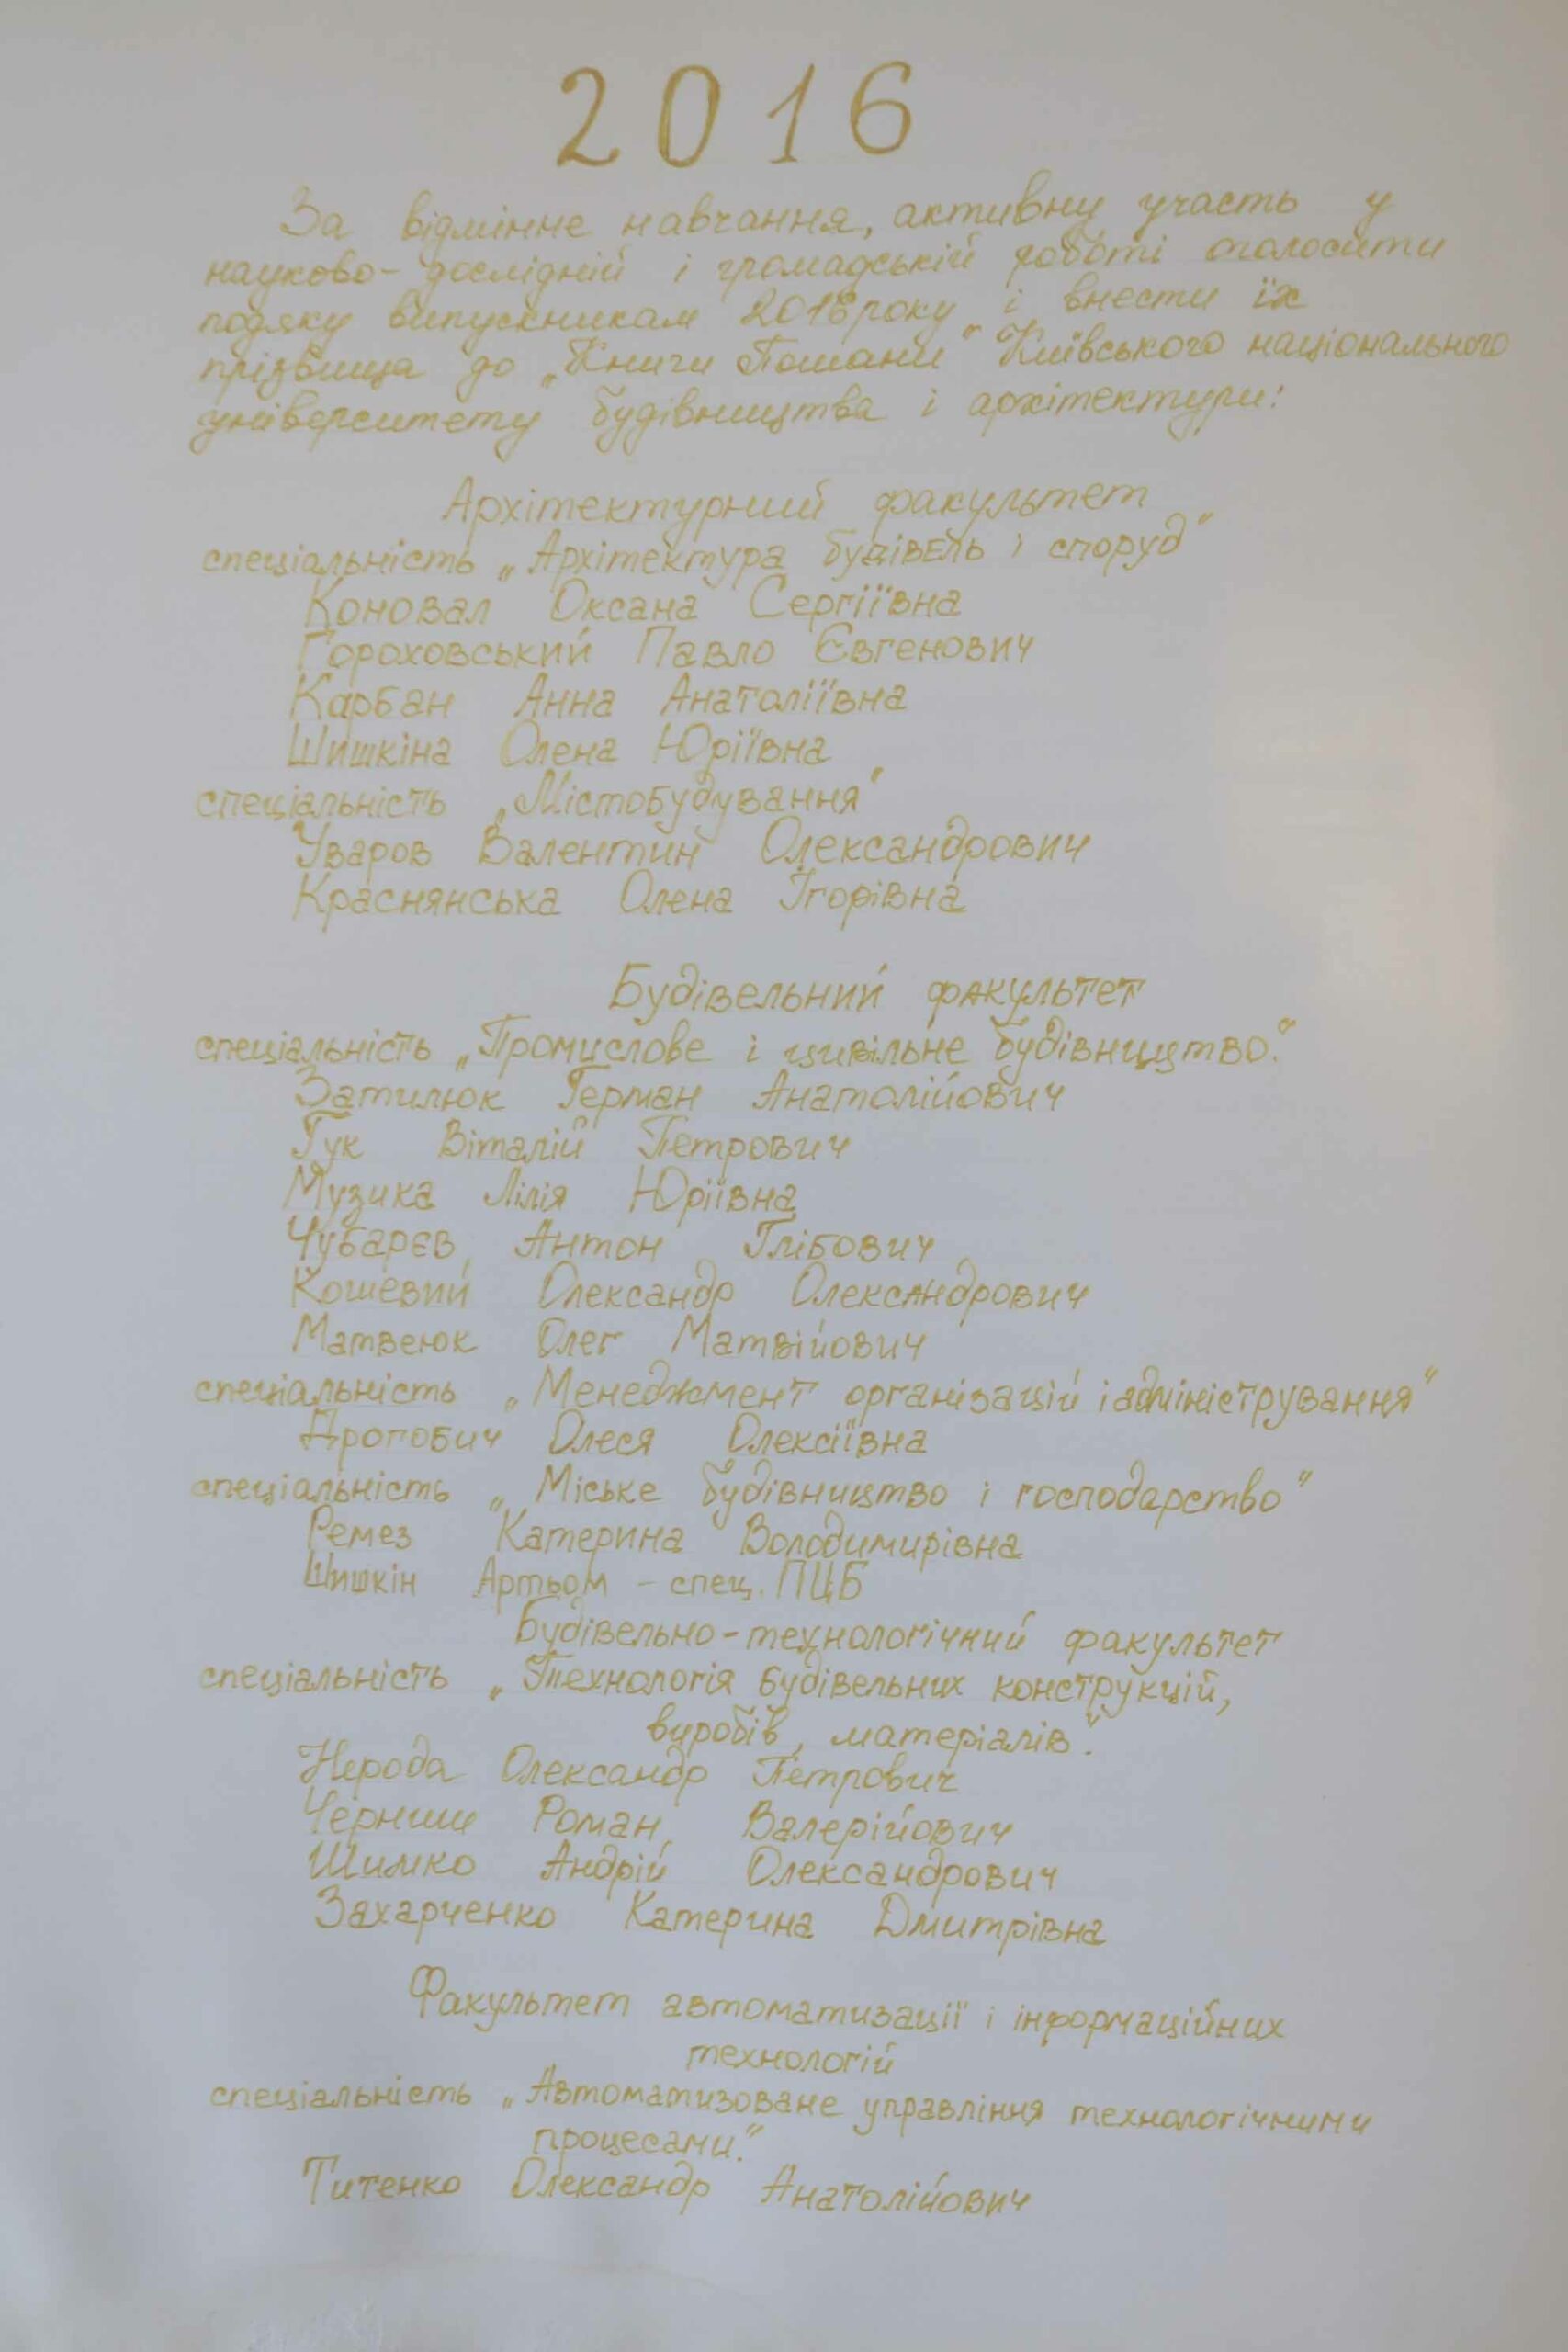 2016
За відмінне навчання, активну участь у
науково-дослідній і громадській роботі оголосити
подяку випускникам 2016 року і внести їх
прізвища до „Книги Пошани" Київського національного
університету будівництва і архітектури:
Архітектурний факультет
спеціальність „Архітектура будівель і споруд"
Коновал Оксана Сергіївна
Гороховський Павло Євгенович
Карбан Анна Анатоліївна
Шишкіна Олена Юріївна
спеціальність „Містобудування"
Уваров Валентин Олександрович
Краснянська Олена Ігорівна
Будівельний факультет
спеціальність „Промислове і цивільне будівництво."
Затилюк Герман Анатолійович
Гук Віталій Петрович
Музика Лілія Юріївна
Чубарєв Антон Глібович
Кошевий Олександр Олександрович
Матвеюк Олег Матвійович
спеціальність „Менеджмент організацій і адміністрування"
Дрогобич Олеся Олексіївна
спеціальність „Міське будівництво і господарство"
Ремез Катерина Володимирівна
Шишкін Артьом - спец. ПЦБ
Будівельно-технологічний факультет
спеціальність „Технологія будівельних конструкцій,
виробів, матеріалів."
Нерода Олександр Петрович
Черниш Роман Валерійович
Шимко Андрій Олександрович
Захарченко Катерина Дмитрівна
Факультет автоматизації і інформаційних
технологій
спеціальність „Автоматизоване управління технологічними
процесами."
Титенко Олександр Анатолійович